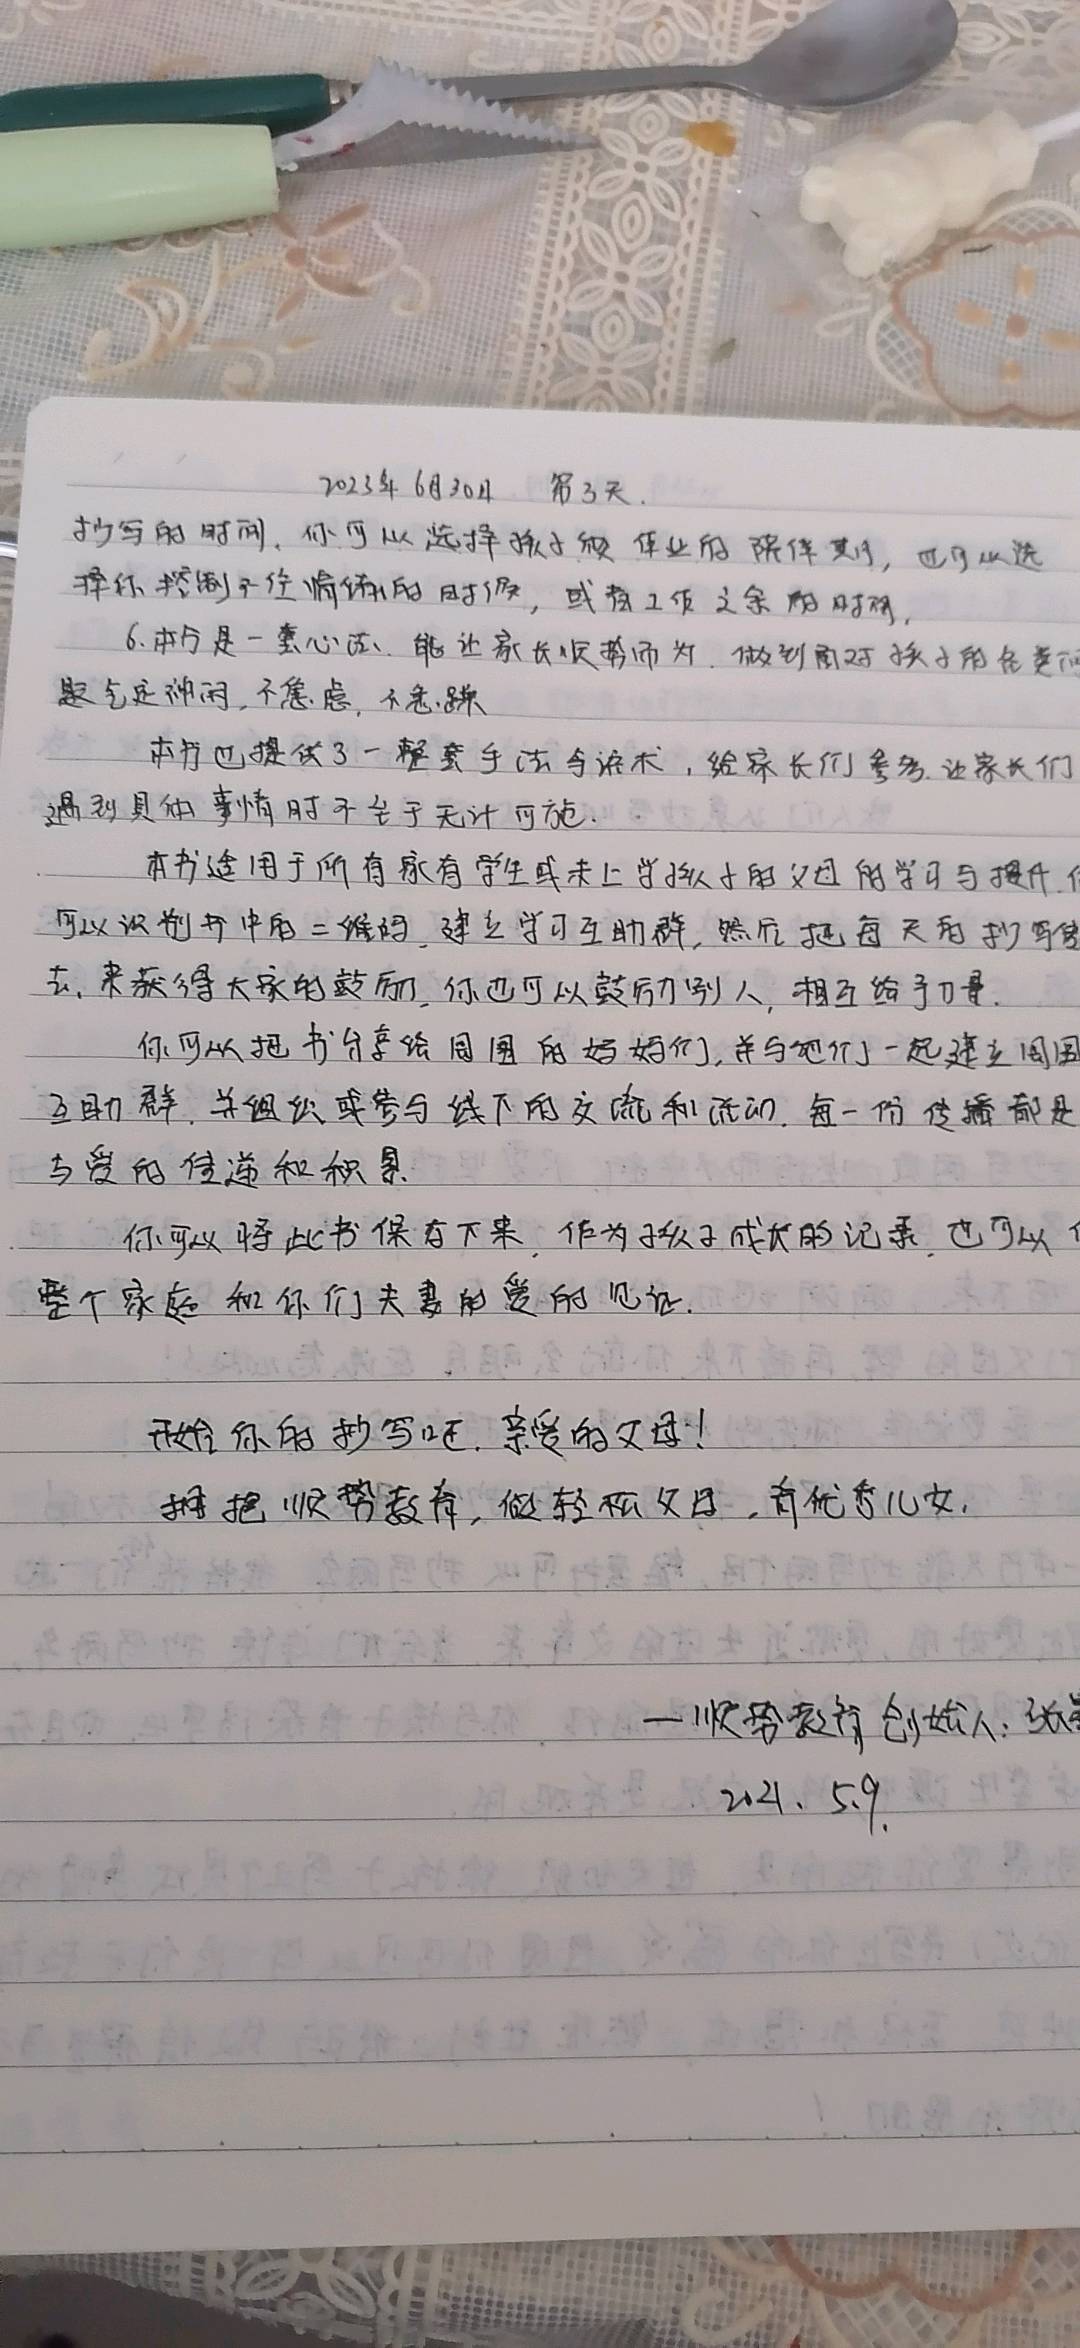 2023年6月30日 第3天.
抄写的时间. 你可以选择孩子做作业的陪伴时, 也可以选
择你控制不住情绪的时候, 或者工作之余的时间,
6.本书是一套心法、能让家长顺势而为. 做到面对孩子的各类问
题气定神闲, 不焦虑, 不急躁
本书也提供了一整套手法与话术, 给家长们参考. 让家长们
遇到具体事情时不至于无计可施.
本书适用于所有家有学生或未上学孩子的父母的学习与提升.
可以识别书中的二维码. 建立学习互助群, 然后把每天的抄写
去, 来获得大家的鼓励, 你也可以鼓励别人, 相互给予力量.
你可以把书分享给周围的妈妈们, 并与她们一起建立周围
互助群. 并组织或参与线下的交流和活动. 每一份传播都是
与爱的传递和积累.
你可以将此书保存下来, 作为孩子成长的记录, 也可以
整个家庭和你们夫妻的爱的见证.
开始你的抄写吧. 亲爱的父母!
拥抱顺势教育, 做轻松父母, 育优秀儿女,
—顺势教育创始人: 张
2021. 5.9.